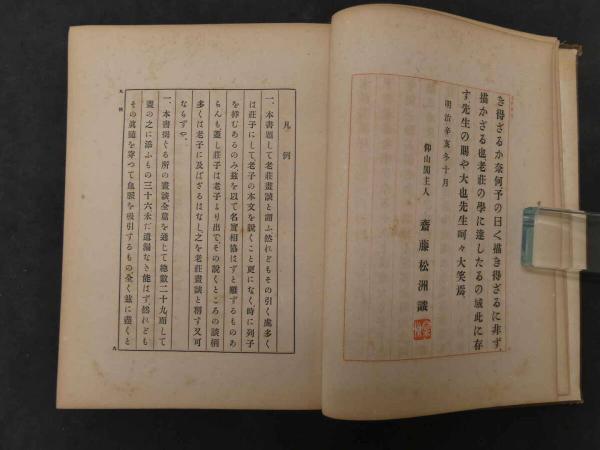 き得ざるか奈何予の曰く描き得ざるに非ず、
描かざる也老莊の學に達したるの域此に存
す、先生の賜や大也先生呵々大笑焉、
明治辛亥冬十月
仰山閣主人
齋藤松洲識
凡例
一、本書題して老莊畫談と謂ふ然れどもその引く處多く
は莊子にして老子の本文を說くこと更になく、時に列子
を挿むあるのみ玆を以て名實相協はずと難ずるものあ
らんも蓋し莊子は老子より出で、その說くところの談柄
多くは老子に及ばざるはなし、之を老莊畫談と稱す又可
ならずや、
一、本書揭ぐる所の畫談、全意を通じて總數二十九而して
畫の之に添ふもの三十六未だ遺漏なき能はず、然れども
その眞髓を穿つて血脈を吸引するもの全く玆に盡くと
凡例
九